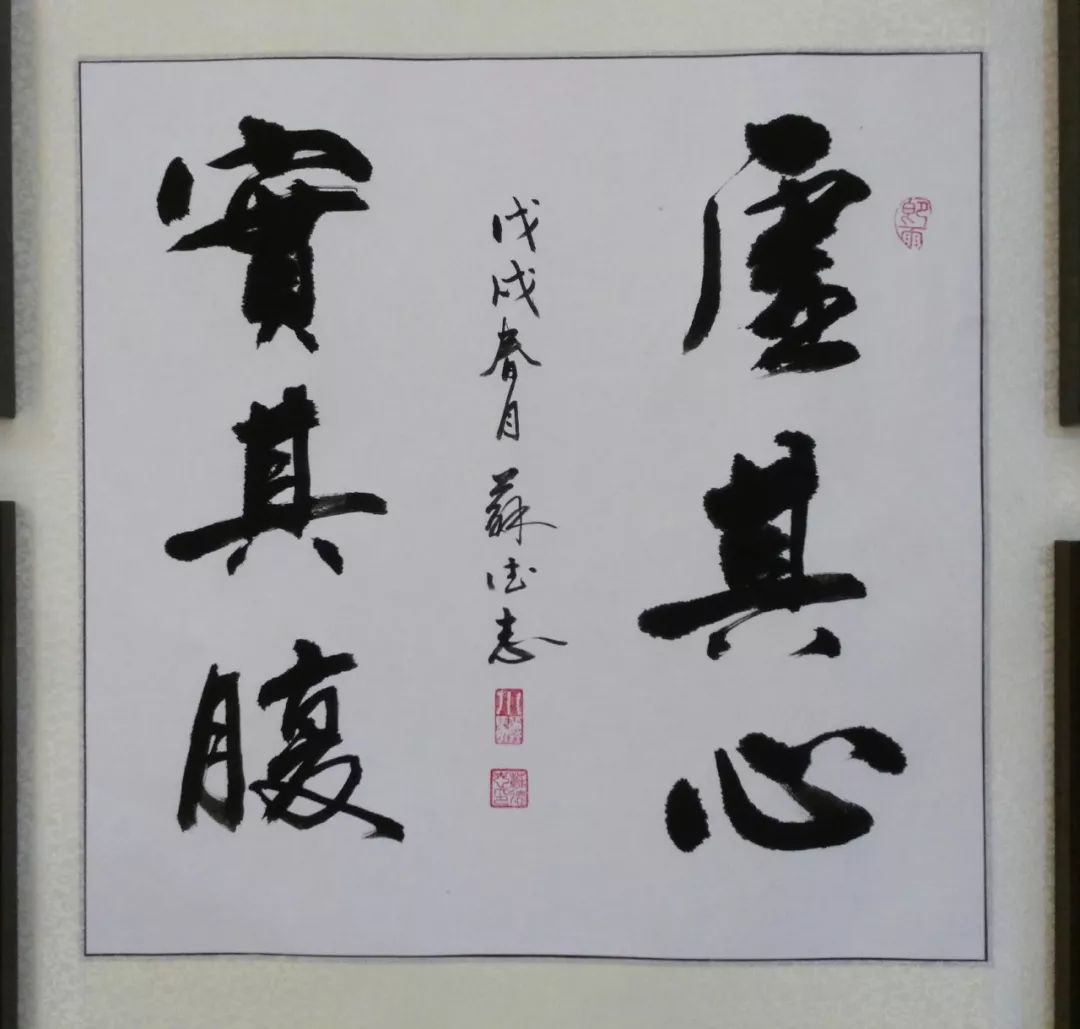 虛其心
實其腹
戊戌春月蘇德志